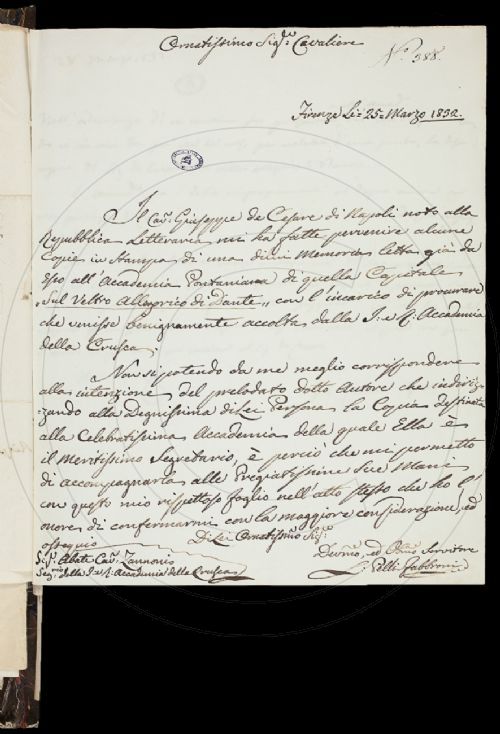 Ornatissimo Sig.r Cavaliere
N.o 388.
Firenze Li = 25 = Marzo 1832.
Il Cav. Giuseppe de Cesare di Napoli noto alla
Repubblica Letteraria mi ha fatte pervenire alcune
Copie in stampa di una di lui Memoria letta già da
Esso all'Accademia Pontaniana di quella Capitale
"Sul Veltro Allegorico di Dante" con l'incarico di procurare
che venisse benignamente accolta dalla I. e R. Accademia
della Crusca.
Non si potendo da me meglio corrispondere
alla intenzione del prelodato dotto Autore che indiriz-
-zando alla Degnissima di Lei Persona la Copia destinata
alla Celebratissima Accademia della quale Ella è
il Meritissimo Segretario, è perciò che mi permetto
di accompagnarla alle Pregiatissime Sue Mani
con questo mio rispettoso foglio nell'atto stesso che ho l'
onore di confermarmi con la maggiore considerazione, ed
ossequio
Di Lei Ornatissimo Sig.r
Sig.r Abate Cav. Zannoni
Seg.rio della I. e R. Accademia della Crusca
Devmo, ed Obmo Servitore
Pelli Fabbroni